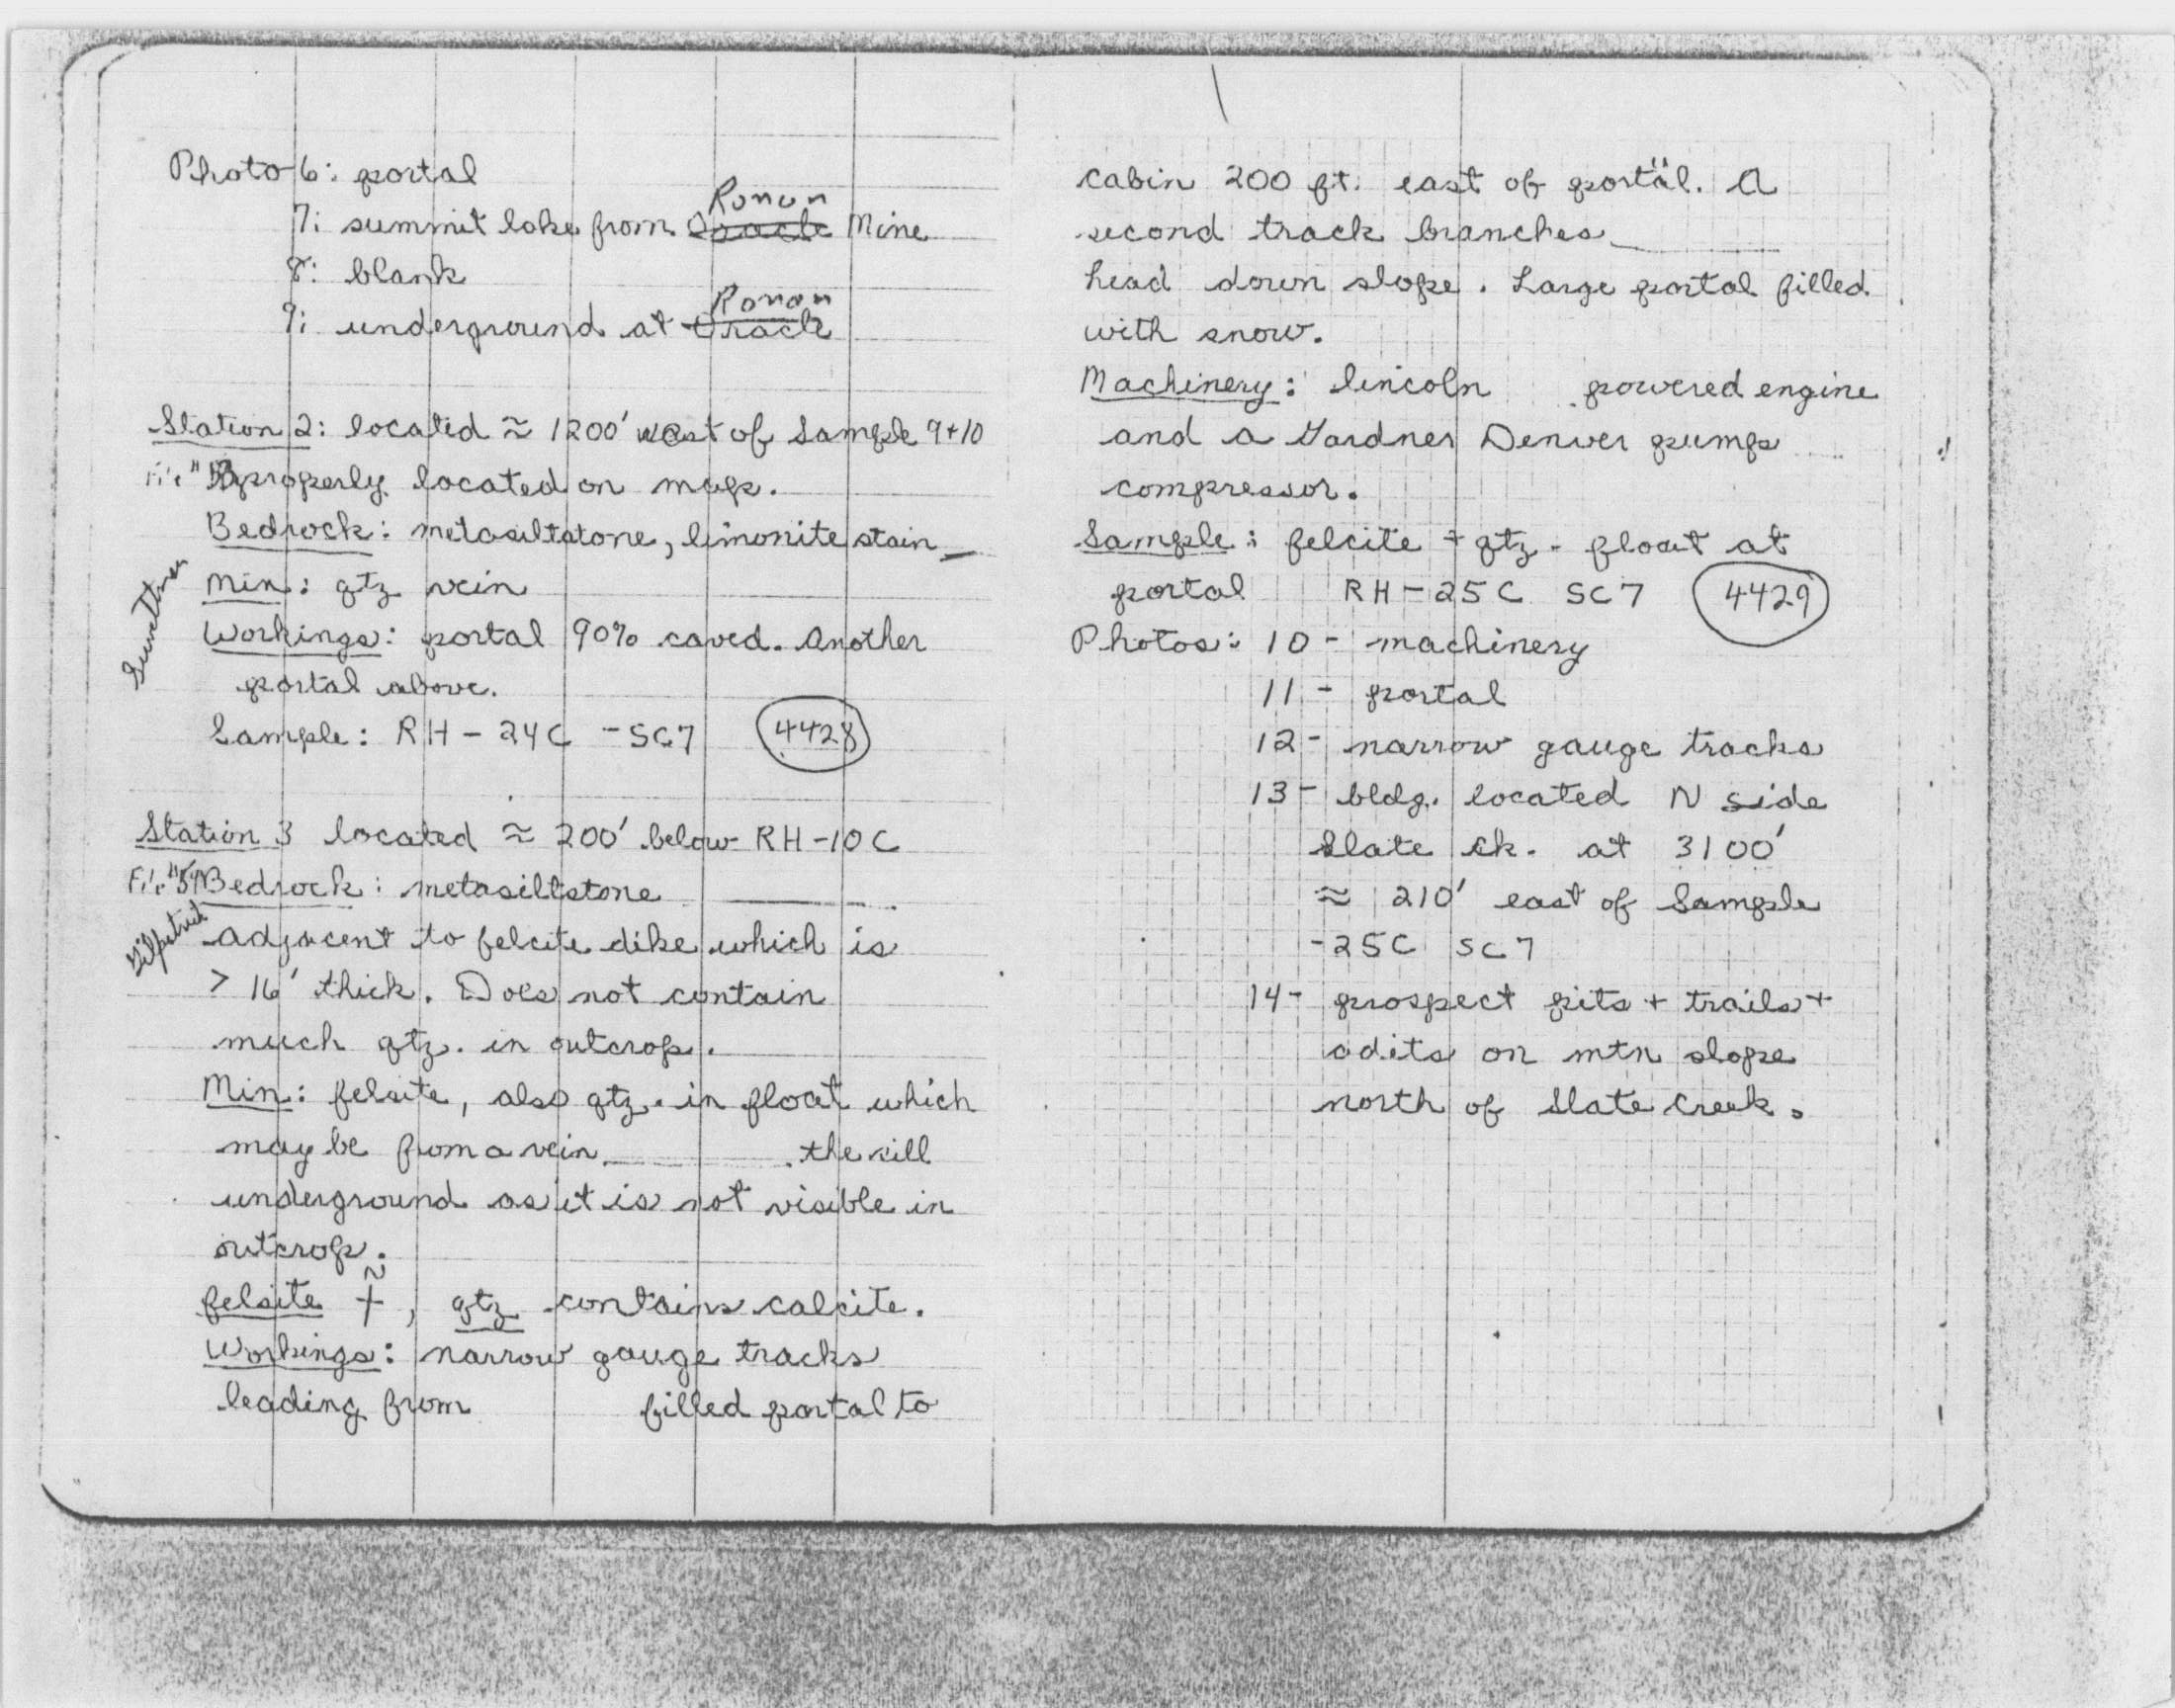 Photo 6: portal
Ronan
7: summit lake from Oracle Mine
8: blank
Ronan
9: underground at Oracle
Station 2: located ≈ 1200' west of Sample 9+10
properly located on map.
Bedrock: metasiltstone, limonite stain
Min: qtz vein
Workings: portal 90% caved. Another
portal above.
Sample: RH-24C -SC7 4428
Station 3 located ≈ 200' below RH-10C
Bedrock: metasiltstone
Gilpatrick
adjacent to felcite dike which is
> 16' thick. Does not contain
much qtz. in outcrop.
Min: felsite, also qtz. in float which
may be from a vein the sill
underground as it is not visible in
outcrop.
felsite +, qtz contains calcite.
Workings: narrow gauge tracks
leading from filled portal to
cabin 200 ft. east of portal. A
second track branches
head down slope. Large portal filled
with snow.
Machinery: lincoln powered engine
and a Gardner Denver pump
compressor.
Sample: felcite + qtz - float at
portal RH-25C SC7 4429
Photos: 10 - machinery
11 - portal
12 - narrow gauge tracks
13 - bldg. located N side
Slate ck. at 3100'
≈ 210' east of Sample
-25C SC7
14 - prospect pits + trails +
adits on mtn slope
north of Slate Creek.